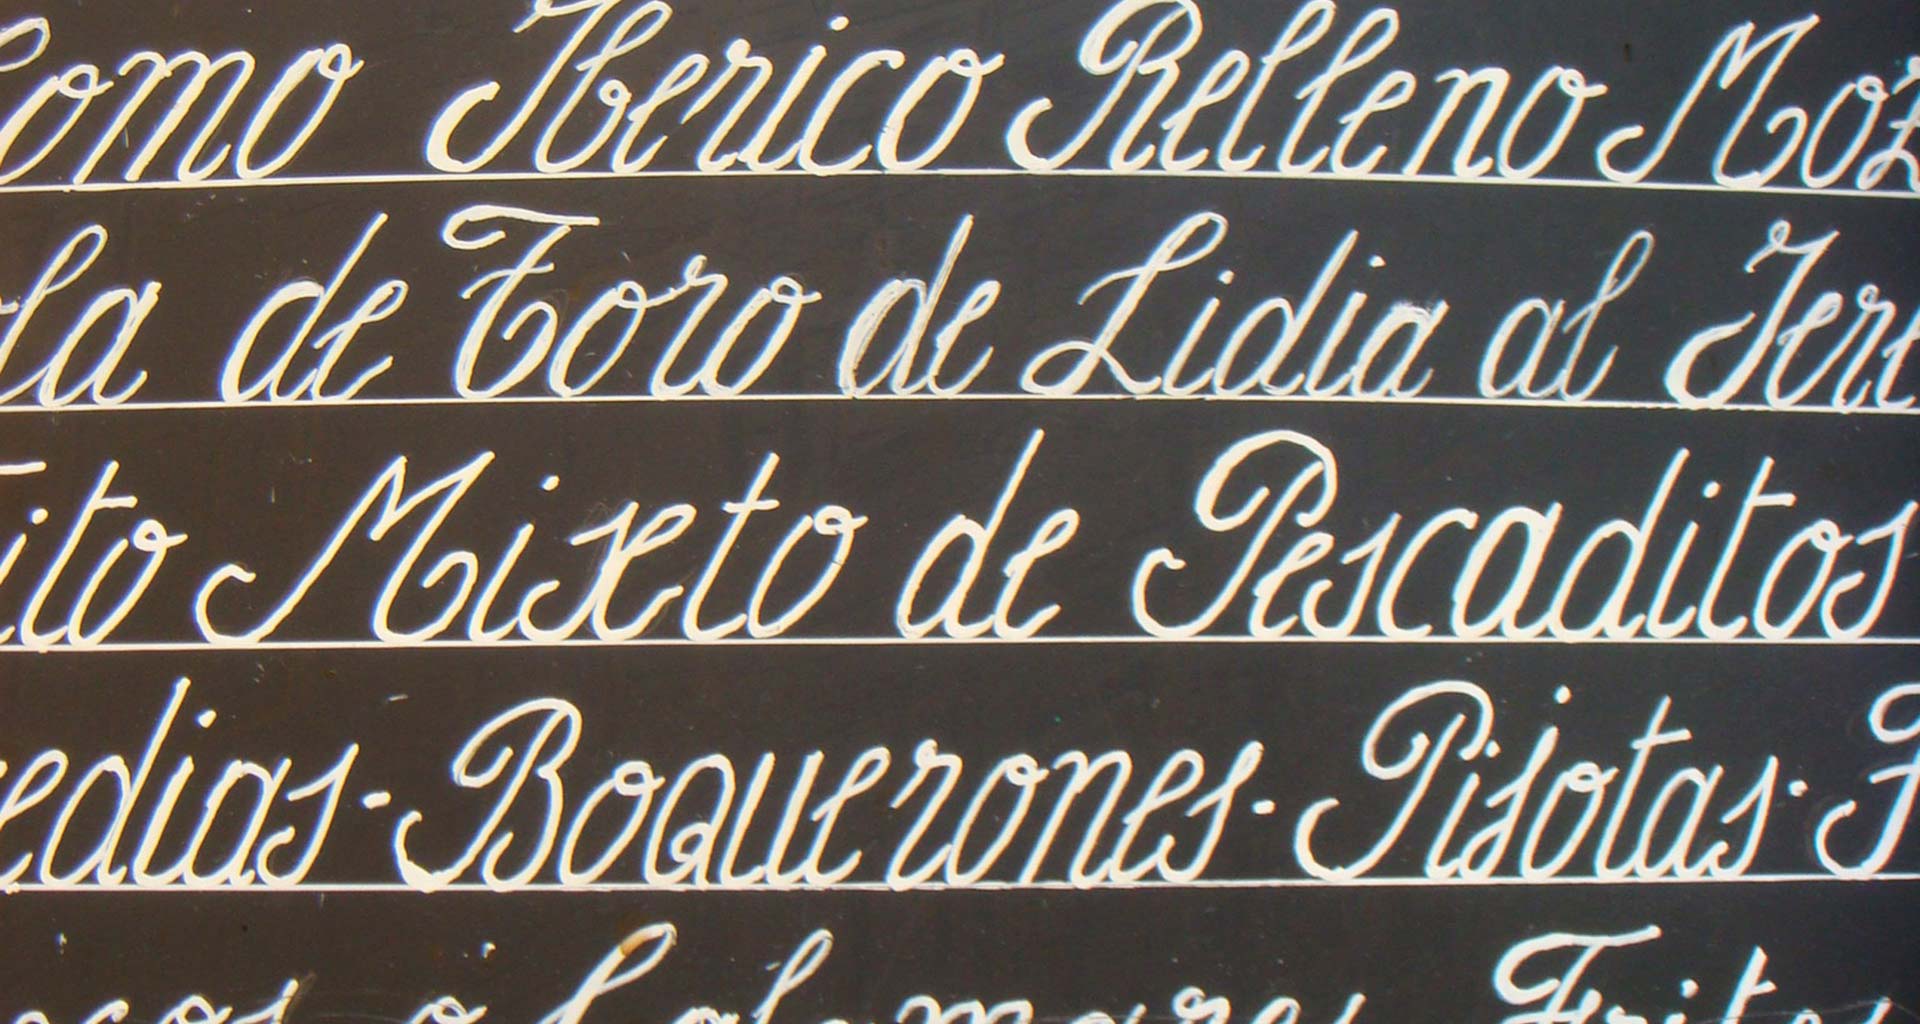 Lomo Iberico Relleno Moz
la de Toro de Lidia al Jere
ito Mixto de Pescaditos
edias · Boquerones · Pijotas ·
ocos o Calamares Fritos